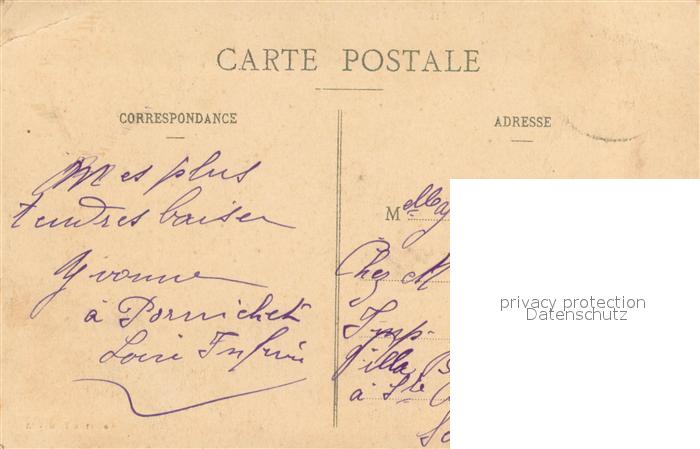 CARTE POSTALE
CORRESPONDANCE
ADRESSE
Mes plus
tendres baiser
Yvonne
à Pornichet
Loire Infrie
Melle
Chez M
Imp
Villa B
à Ste
privacy protection
Datenschutz